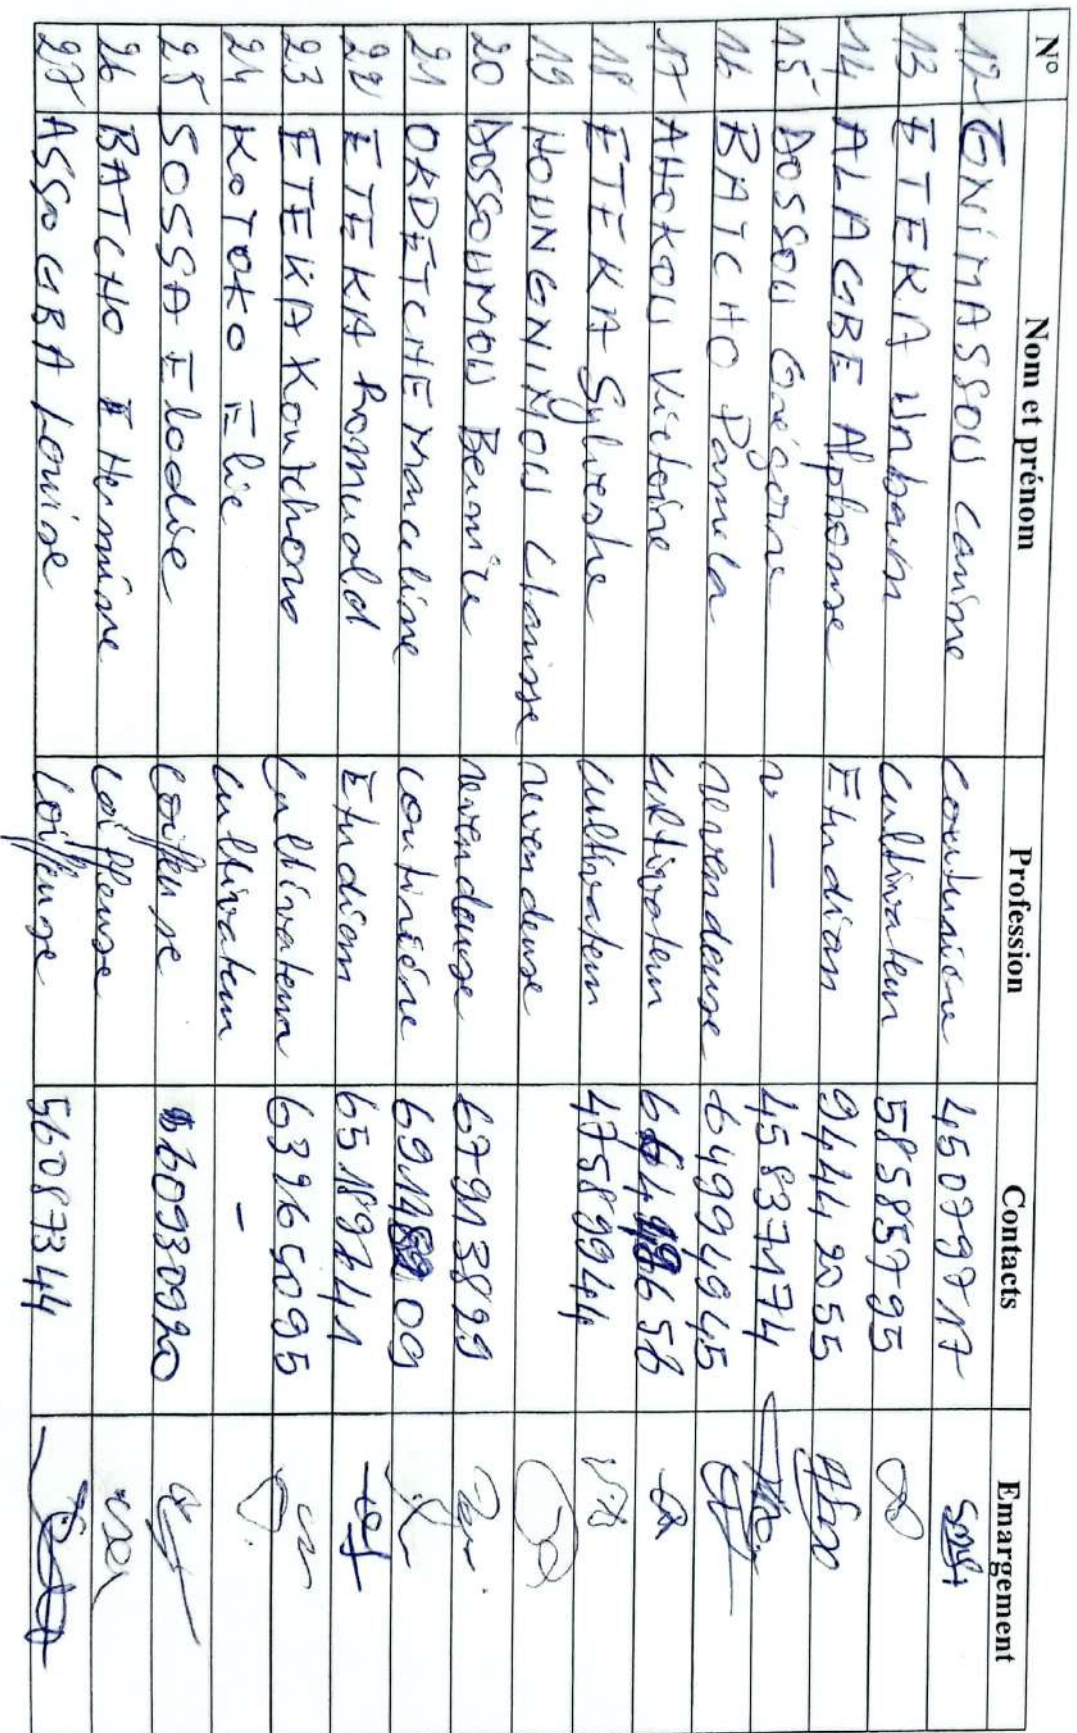 N° Nom et prénom Profession Contacts Emargement
12 GNIMASSOU Carine Couturière 45079717
13 ETEKA Urbain Cultivateur 58585795
14 ALAGBE Alphonse Etudian 94442055
15 DOSSOU Grégoire v — 45837174
16 BATCHO Pamela revendeuse 64994945
17 AHOKOU Victoire cultivateur
18 ETEKA Sylvestre cultivateur 47589944
19 HOUNGNIMOU Clarisse revendeuse
20 DOSSOUMOU Bernice revendeuse 67913899
21 OKDETCHE Marceline couturière
22 ETEKA Romuald Etudiam 65189441
23 ETEKA Koutchoro Cultivateur 63965095
24 KOTOKO Elie Cultivateur -
25 SOSSA Elodie coiffeuse 60930920
26 BATCHO Hermine Coiffeuse
27 ASSOGBA Louise Coiffeuse 56087344